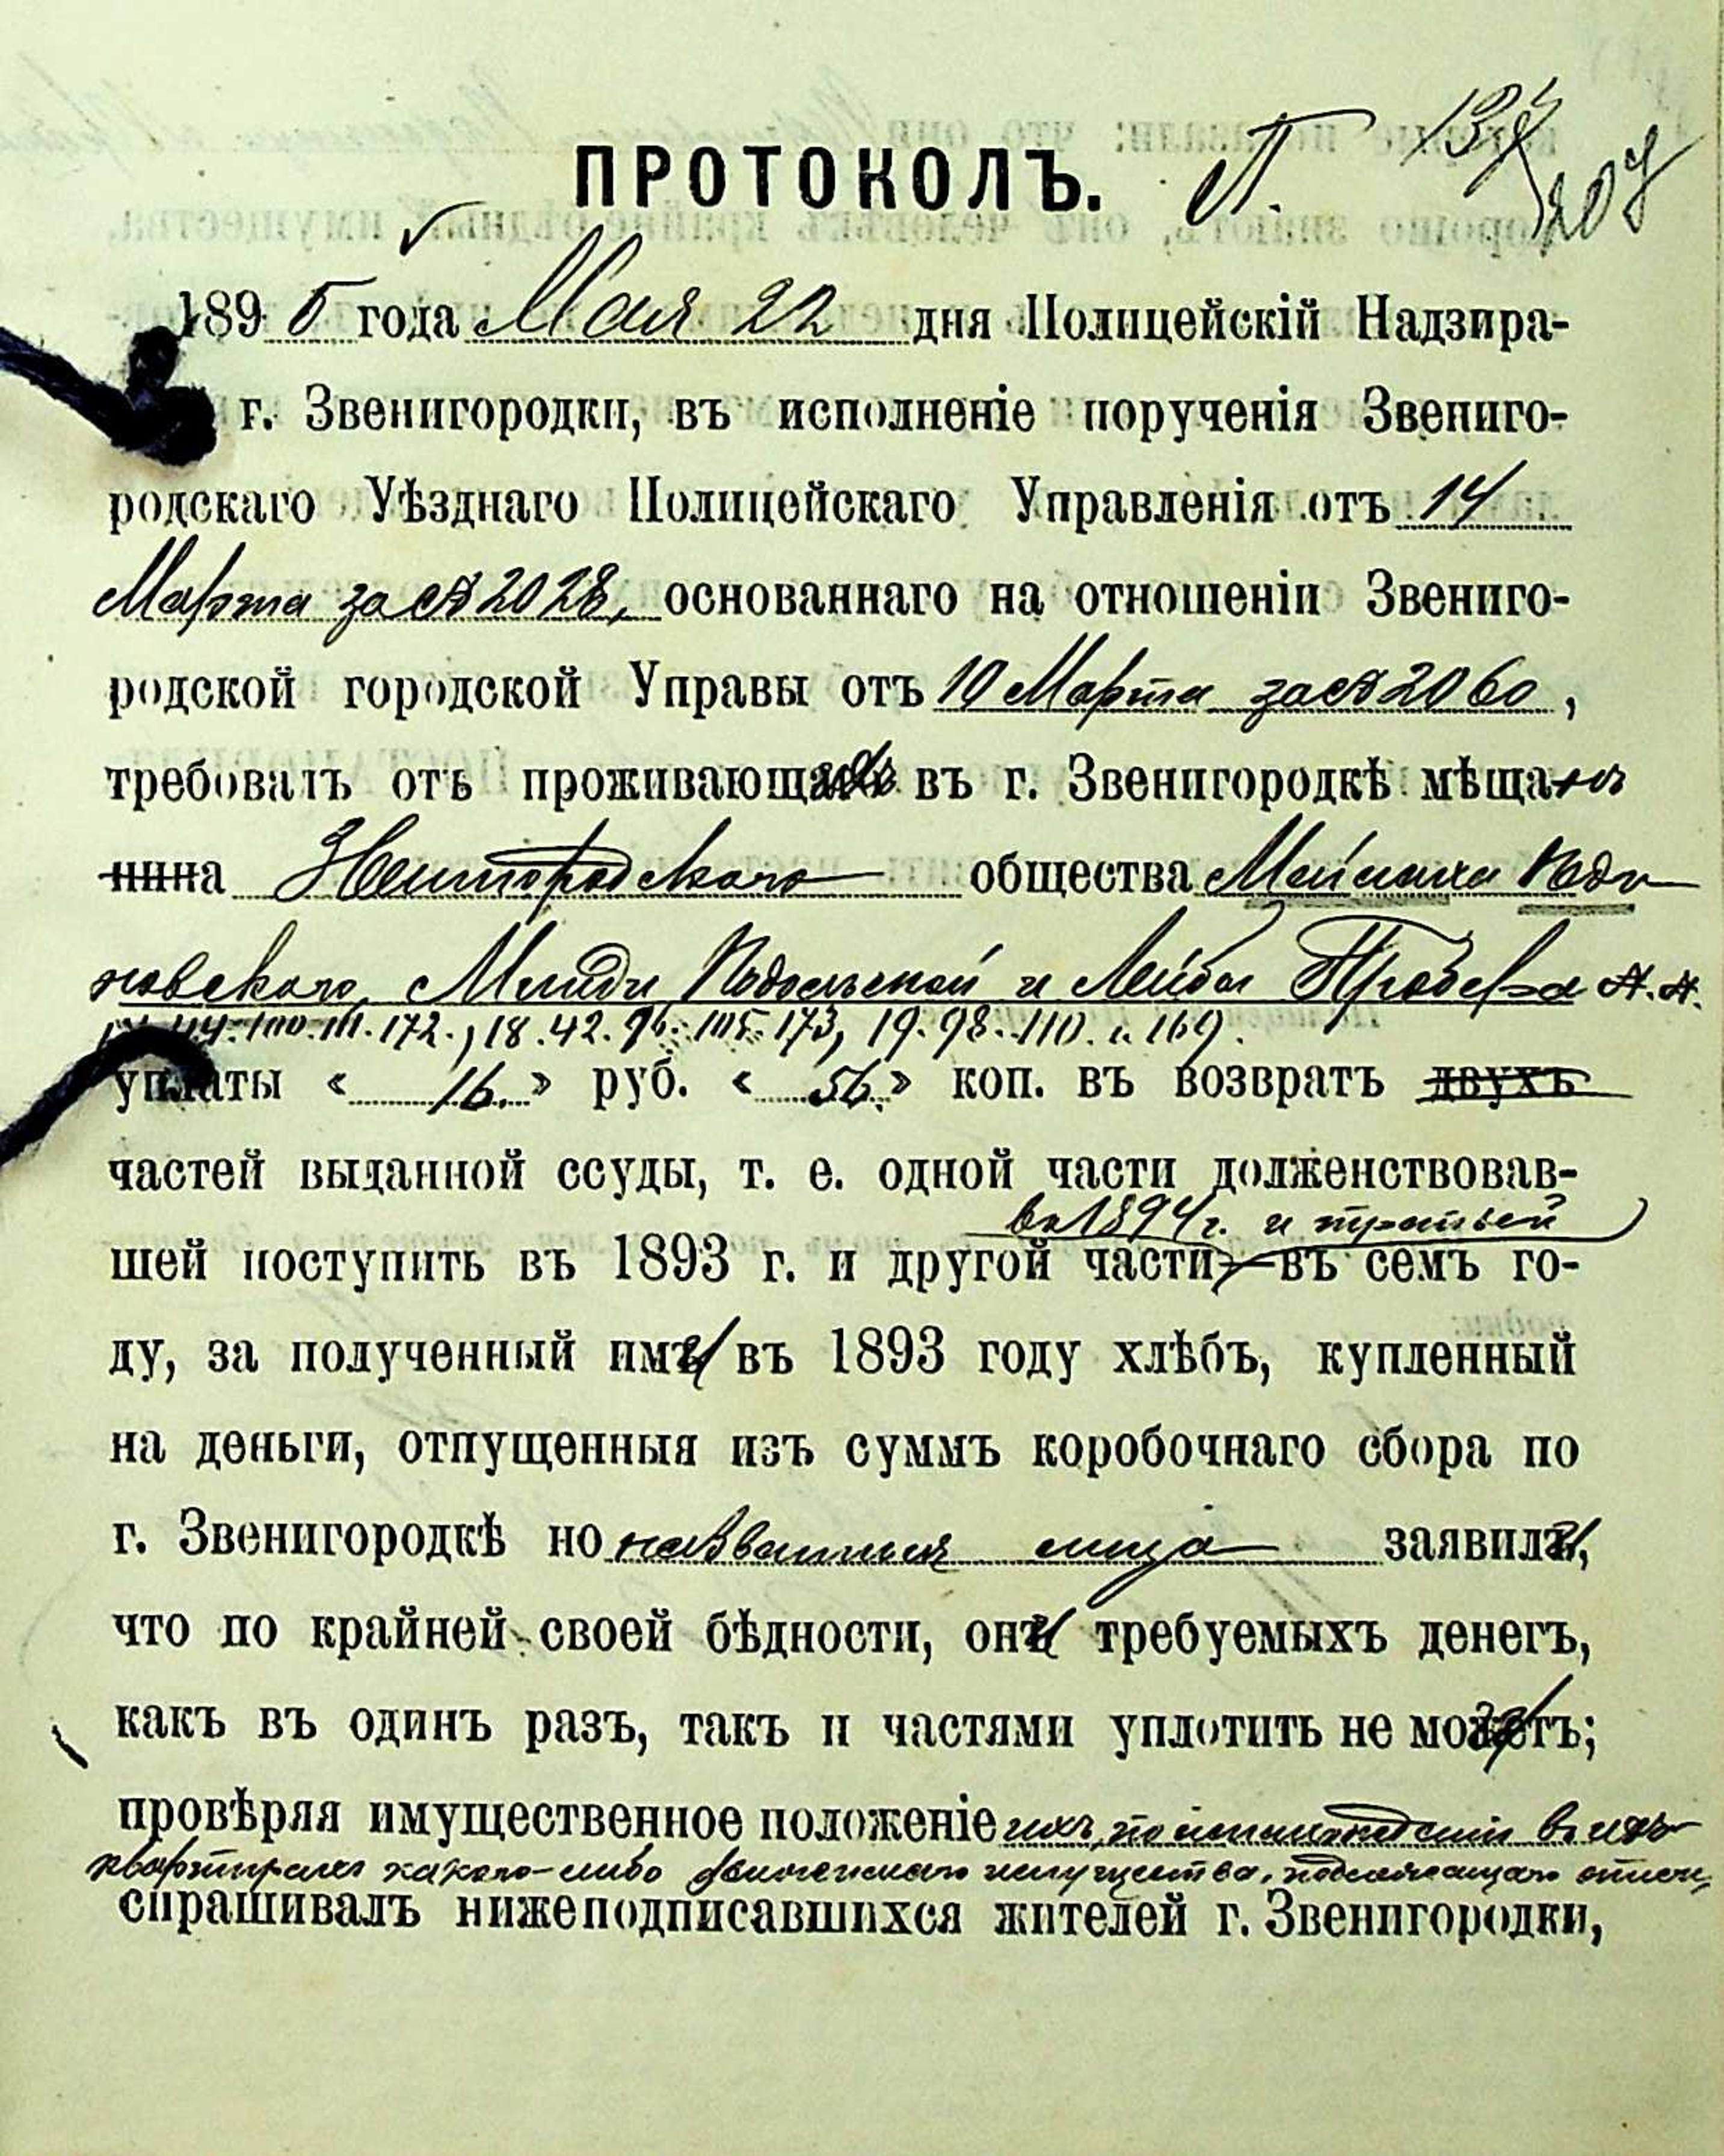 ПРОТОКОЛЪ. П. 207
1895 года Мая 22 дня Полицейскій Надзира-
г. Звенигородки, въ исполненіе порученія Звениго-
родскаго Уѣзднаго Полицейскаго Управленія отъ 14
Марта за № 2028, основаннаго на отношеніи Звениго-
родской городской Управы отъ 10 Марта за № 2060,
требовать отъ проживающ въ г. Звенигородкѣ мѣщанъ
нина общества
и Лейбы №.№.
100. 111. 172., 18. 42. 96. 105. 173, 19. 98. 110. и 169.
уплаты « 16. » руб. « 56. » коп. въ возвратъ двухъ
частей выданной ссуды, т. е. одной части долженствовав-
въ 1894 г. и третьей
шей поступить въ 1893 г. и другой части, въ семъ го-
ду, за полученный ими въ 1893 году хлѣбъ, купленный
на деньги, отпущенныя изъ суммъ коробочнаго сбора по
г. Звенигородкѣ но названныя лица заявили,
что по крайней своей бѣдности, они требуемыхъ денегъ,
какъ въ одинъ разъ, такъ и частями уплотить не могутъ;
провѣряя имущественное положеніе ихъ, по въ ихъ
квартирахъ какого-либо движимаго имущества, подлежащаго описи,
спрашивалъ нижеподписавшихся жителей г. Звенигородки,